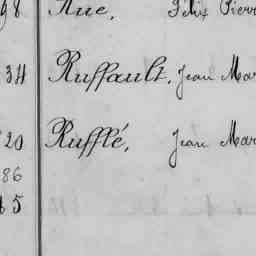 98 Rue, Félix Pierr
34 Ruffault, Jean Mar
20 Rufflé, Jean Mar
86
15